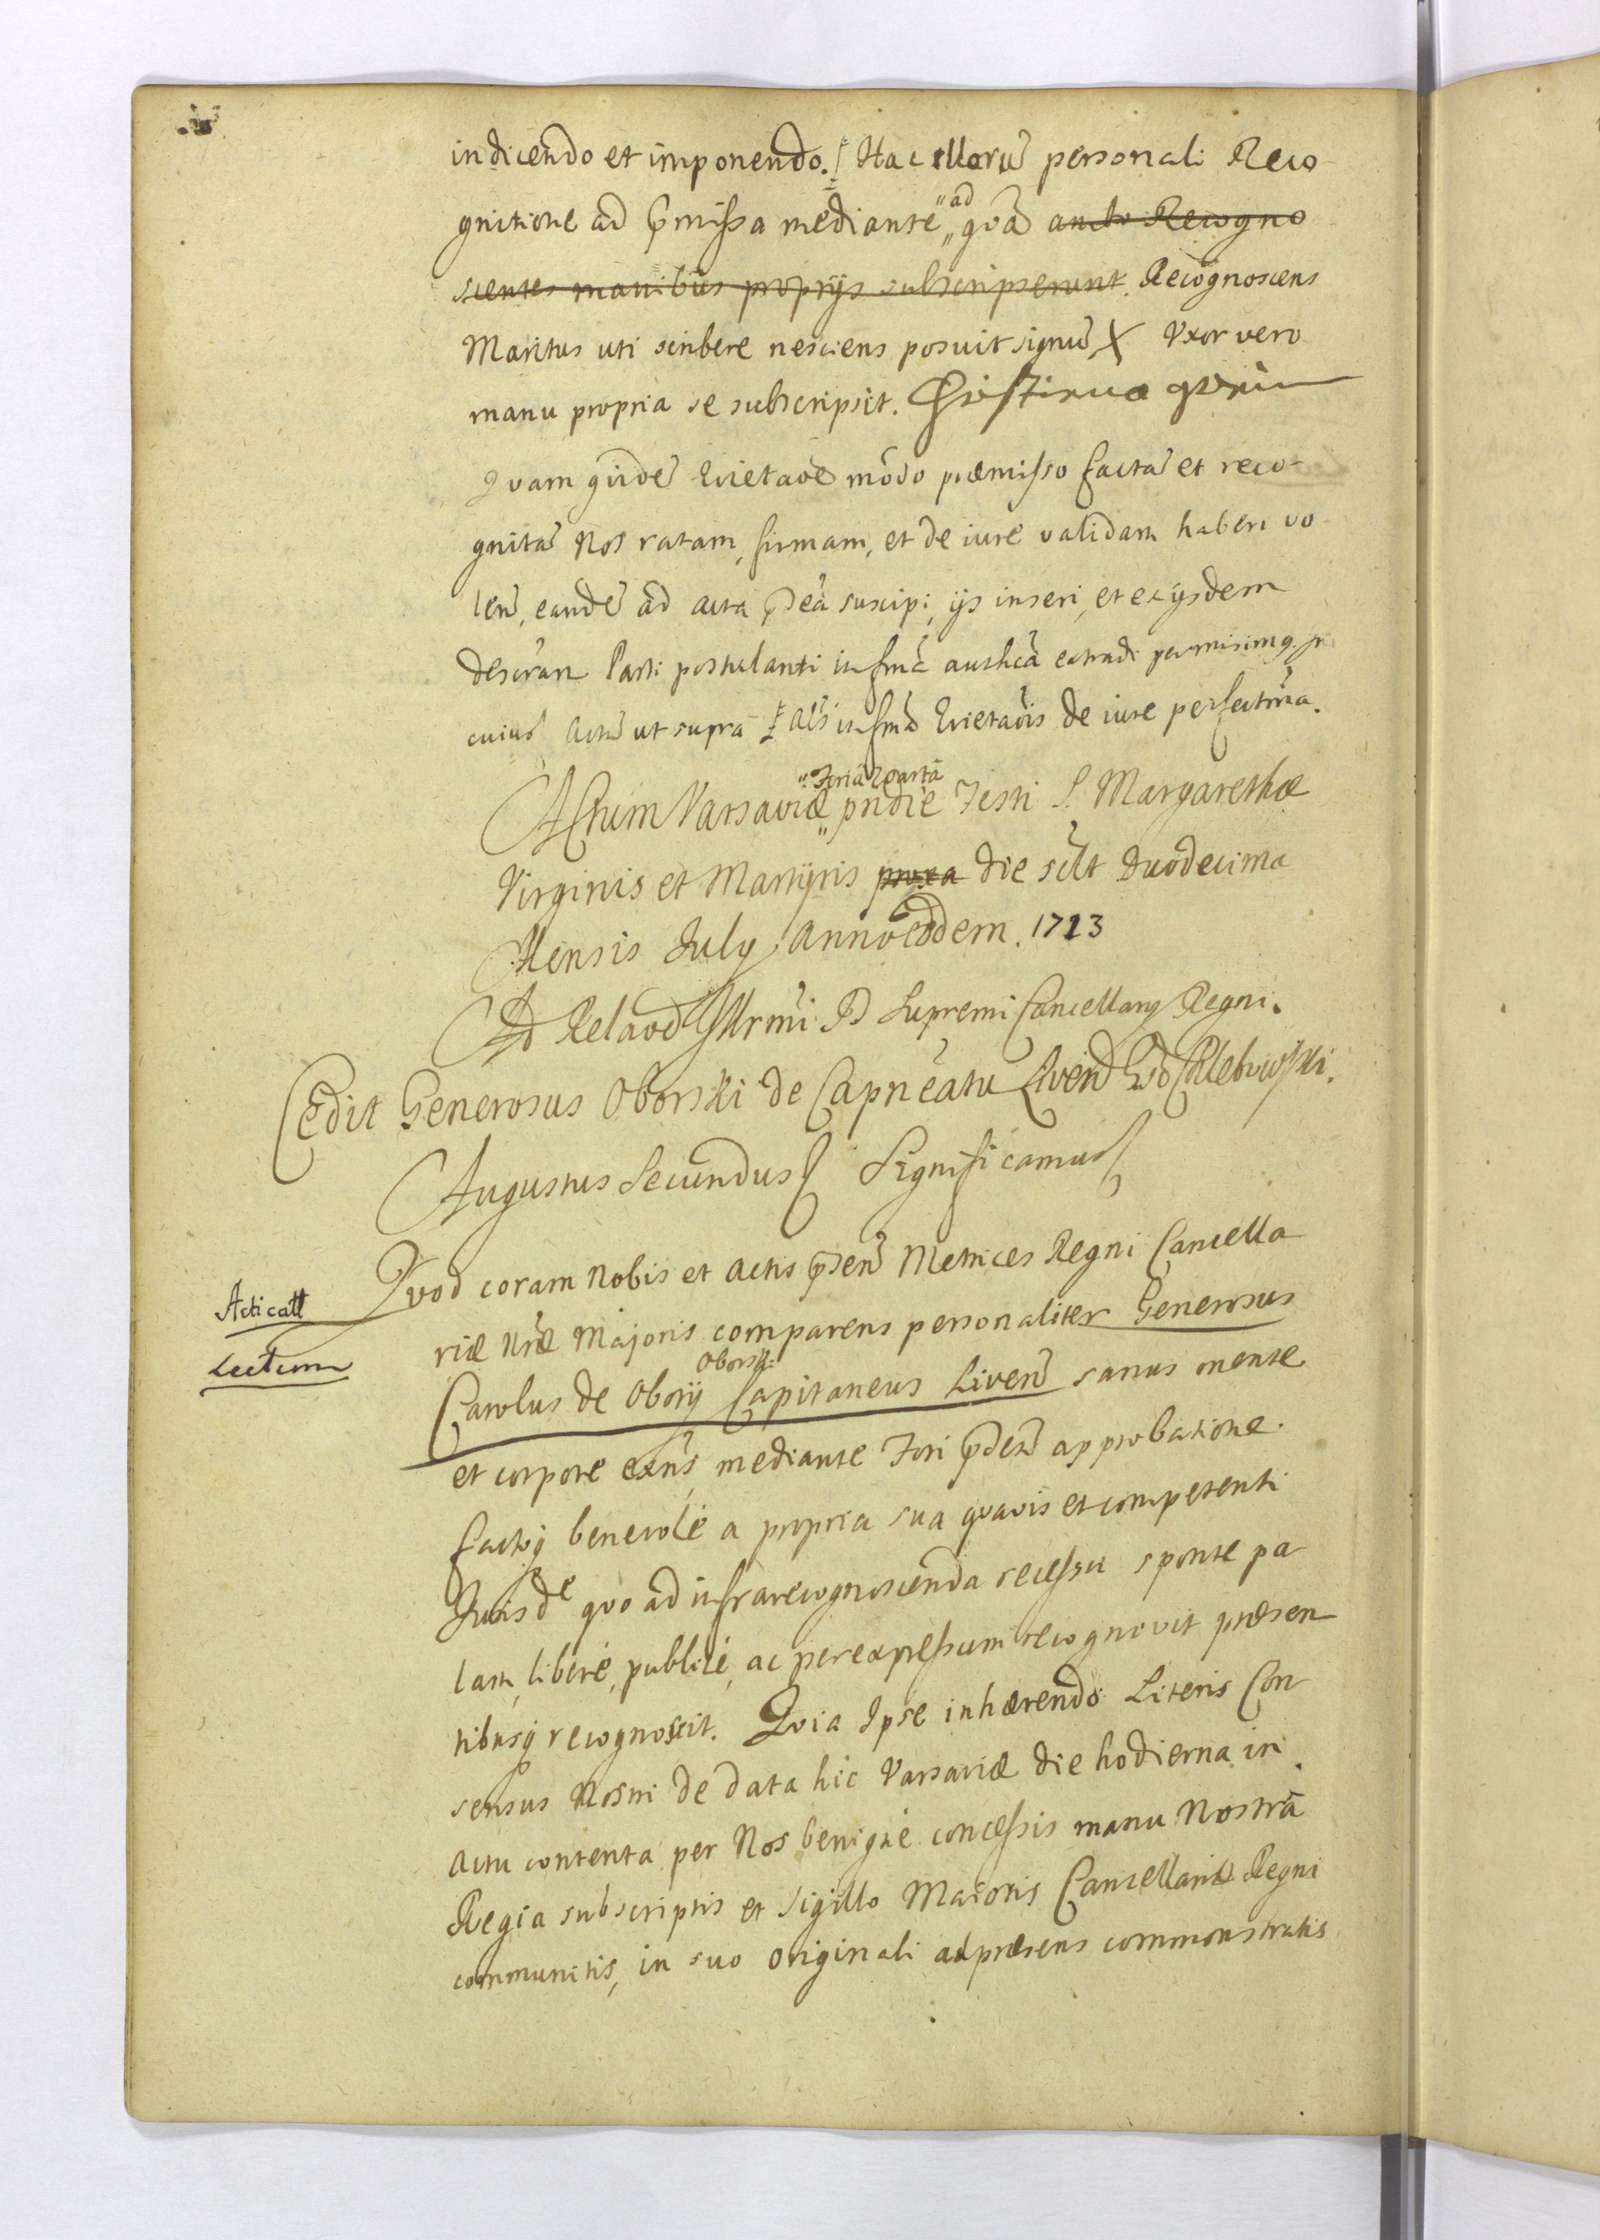 indicendo et imponendo. Hac illorū personali Reco
gnitione ad p̄missa mediante ad qvā ambo Recogno
scentes manibus proprijs subscripserunt. Recognoscens
Maritus uti scribere nesciens posuit signū X Vxor vero
manu propria se subscripsit.
Qvam qvidē Qvietaōē modo præmisso factā et reco-
gnitā Nos ratam, firmam, et de iure validam haberi vo
len̄, eandē ad acta p̄dēa suscipi, ijs inseri, et ex ijsdem
Parti postulanti in fmā authcā extradi permisimq.
cuius Actū ut supra Als in fmā Qvietaōis de iure perfectma.
Actum Varsaviæ Feria Qvarta pridie Festi S. Margarethæ
Virginis et Martyris proxa die scilt Duodecima
Mensis July Anno eodem. 1723
Ad Relaoē Illrmi D Supremi Cancellarij Regni.
Cedit Generosus Oborski de Capneatu Liven̄ Gdo Chlebowski.
Augustus Secundus Significamus
Qvod coram Nobis et Actis p̄sen̄ Metrices Regni Cancella
Acticatt
riæ Nræ Majoris comparens personaliter Generosus
Lectum
Carolus de Obory Oborski Capitaneus Liven̄ sanus mente
et corpore exn̄s mediante Fori p̄den̄ approbatione
factoq benevolè a propria sua qvavis et competenti
Jurisdē qvo ad infrarecognoscenda recessu sponte pa
lam, liberè, publicè, ac per expressum recognovit præsen
tibusq recognoscit. Qvia Ipse inhærendo Literis Con
sensus Nostri de data hic Varsaviæ die hodierna in
Actu contenta per Nos benignè concessis manu Nostrâ
Regia subscriptis et Sigillo Maioris Cancellariæ Regni
communitis, in suo Originali ad præsens commonstratis